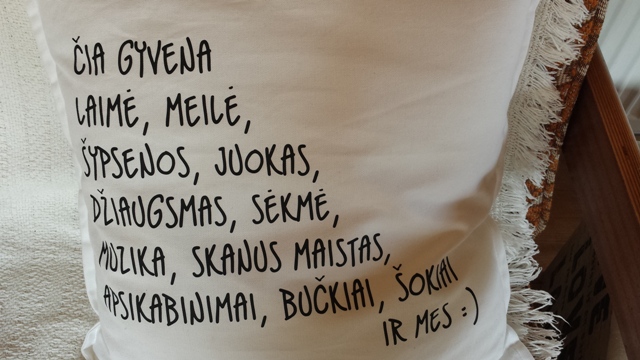 ČIA GYVENA
LAIMĖ, MEILĖ,
ŠYPSENOS, JUOKAS,
DŽIAUGSMAS, SĖKMĖ,
MUZIKA, SKANUS MAISTAS,
APSIKABINIMAI, BUČKIAI, ŠOKIAI
IR MES :)